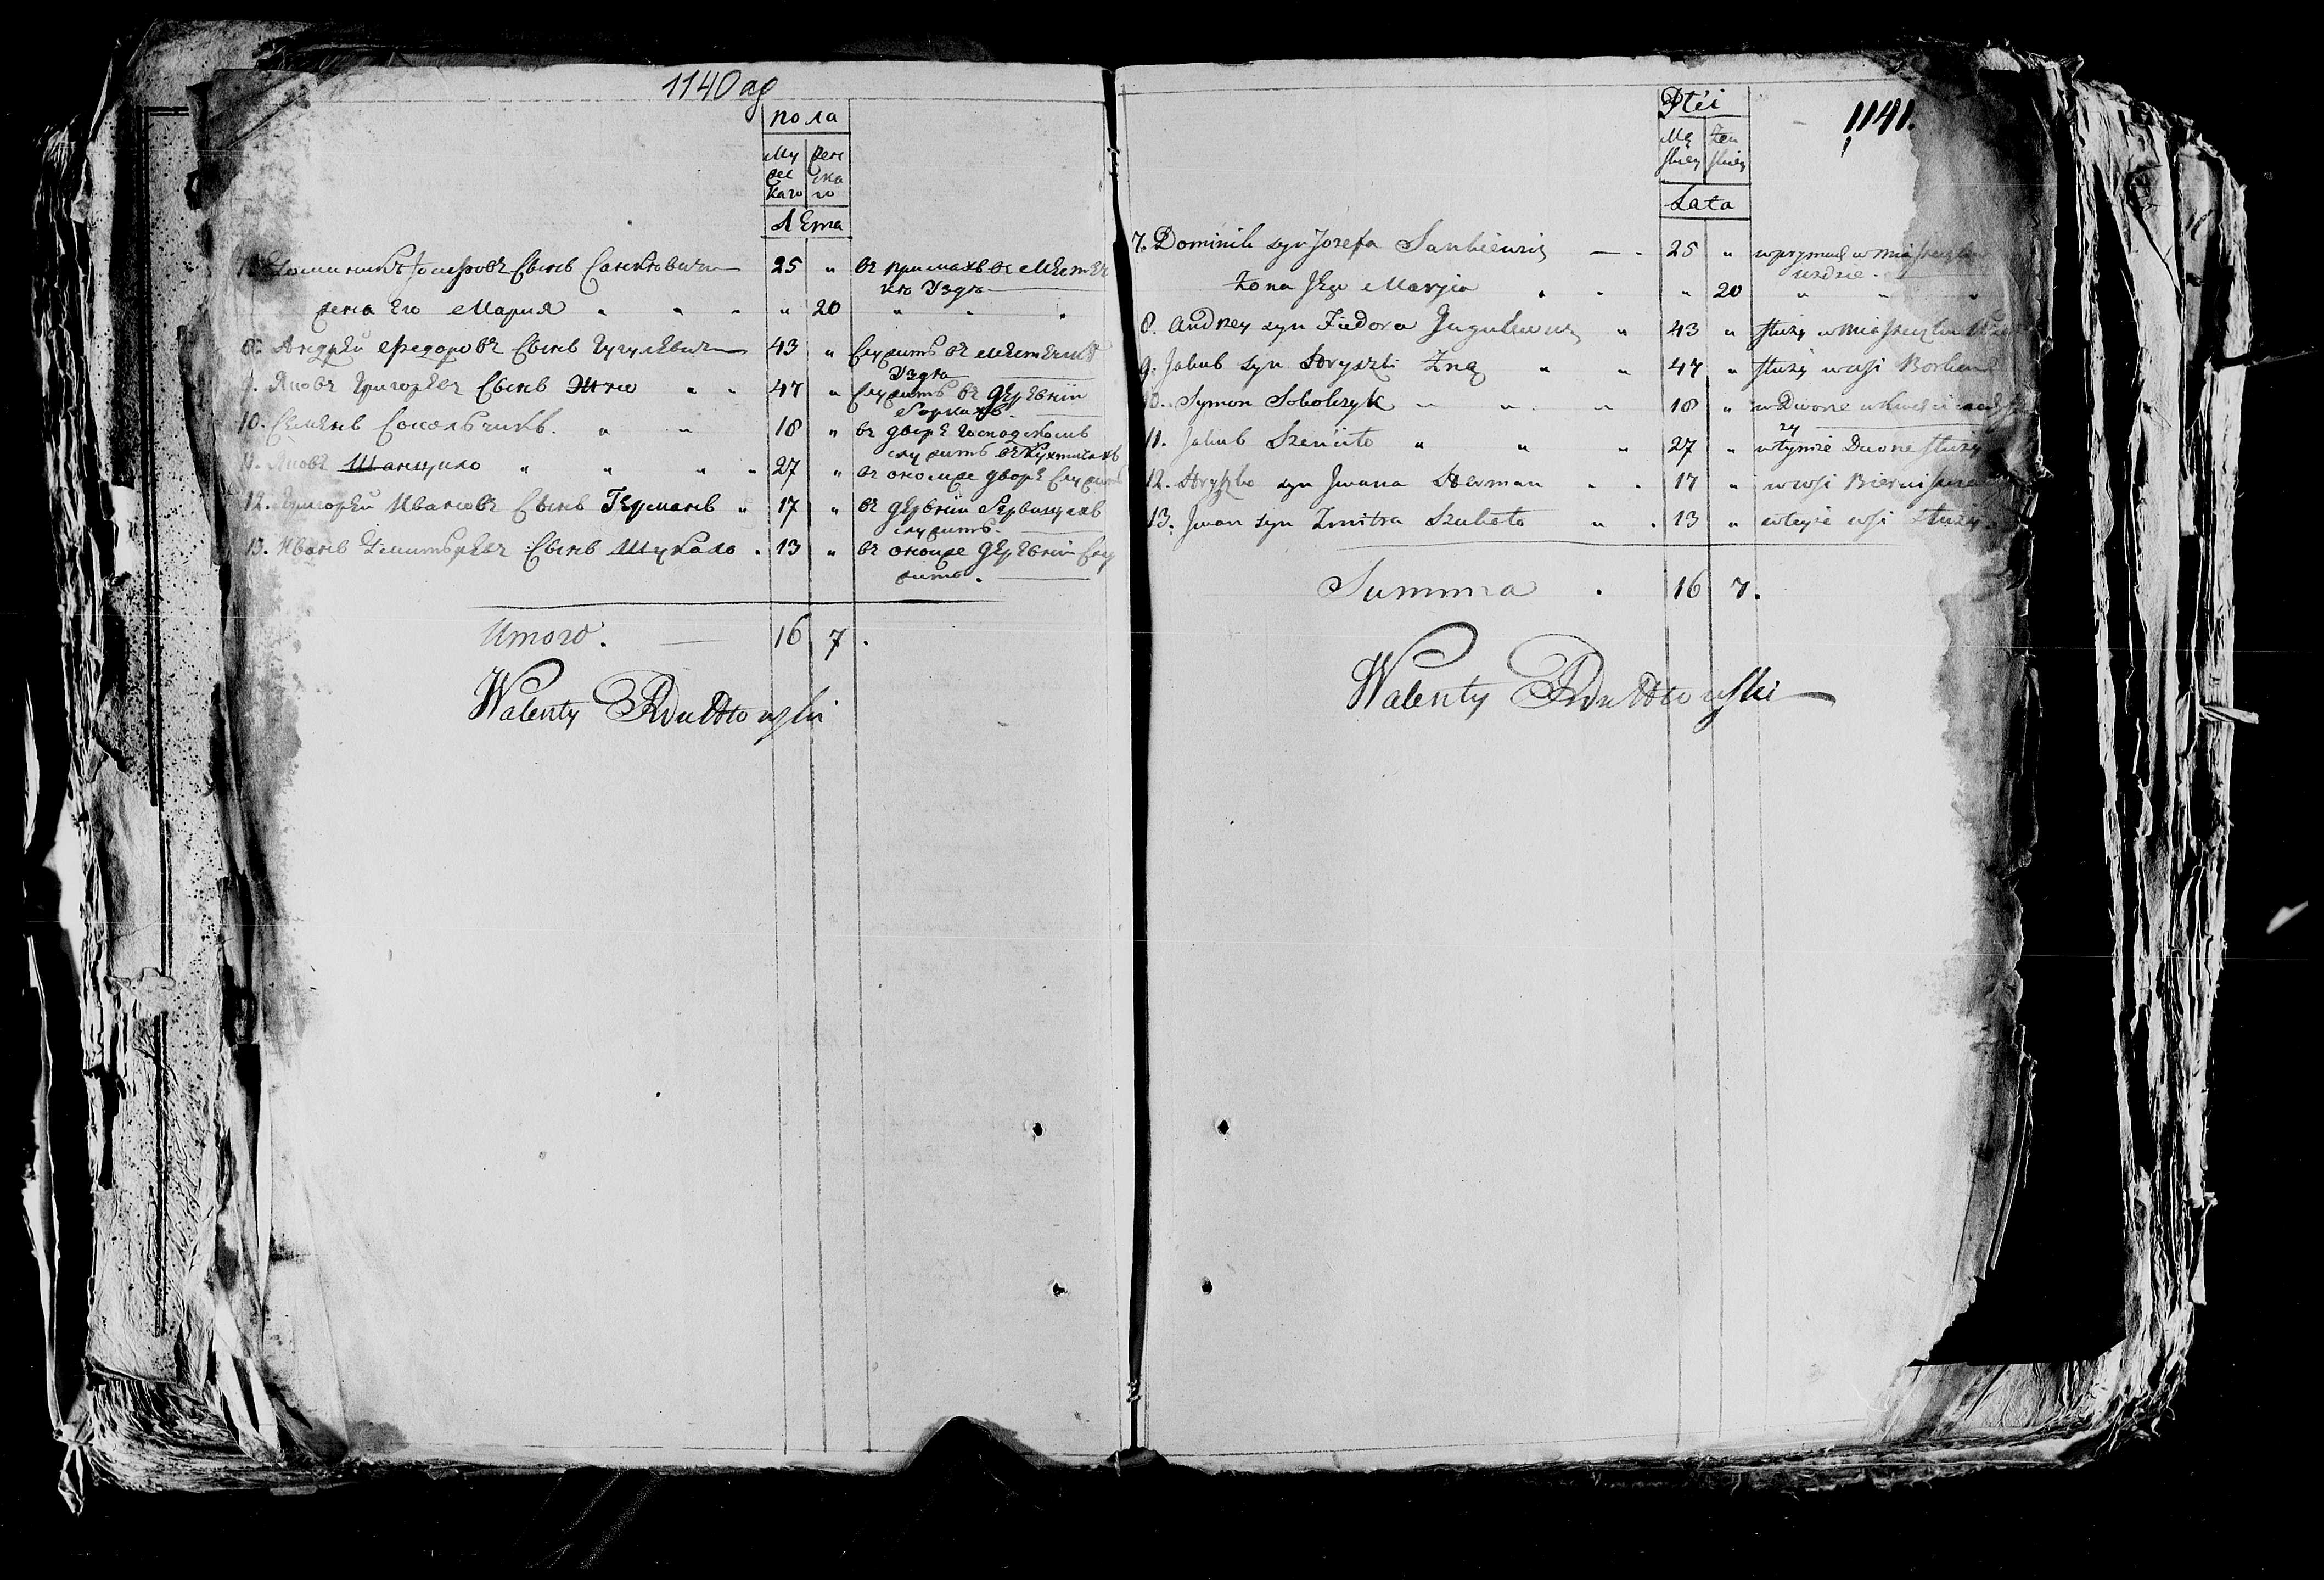 1140 об
пола
Му
жес
каго
Жен
ска
го
Лета
Доминикъ Іосифовъ сынъ Санкевичъ 25 " въ примахъ въ местеч
кѣ Узде
жена Его Мария " " " " 20 " " "
8. Андрей Федоровъ сынъ Гугулевичъ 43 " служитъ въ местечкѣ
Узда
9. Яковъ Григорьевъ сынъ Жно " " 47 " служитъ въ деревнїи
Боркахъ.
10. Семенъ Сокольчикъ. " " 18 " въ дворе господскомъ
служитъ въ Кухтичахъ
11. Яковъ Шанцило " " " " 27 " въ окомже дворе служитъ
12. Григорей Ивановъ сынъ Германъ " 17 " въ деревнїи
служитъ.
13. Иванъ Дмитрьевъ сынъ Шукало . 13 " въ окоиже деревнїи слу
житъ.
Итого. 16 7.
Walenty
1141.
Płci
Mę
skiey
Żeń
skiey
Lata
7. Dominik syn Jozefa Sankiewicz 25 " w prymach w Miasteczku
Uzdzie.
Żona Jego Maryia " " " 20 " " "
8. Andrzey syn Fiedora Gugulewicz " 43 " służy w Miasteczku
9. Jakub syn Hryszki Żno " " 47 " służy w wsi Borkach
10. Symon Sobolczyk " " " 18 " w Dworze
11. Jakub Szeńciło " " " 27 " w tymże Dworze służy
12. Hryszko syn Jwana Herman " . 17 " w wsi
13. Jwan syn Zmitra Szukało " . 13 " w teyże wsi służy
Summa . 16 7.
Walenty